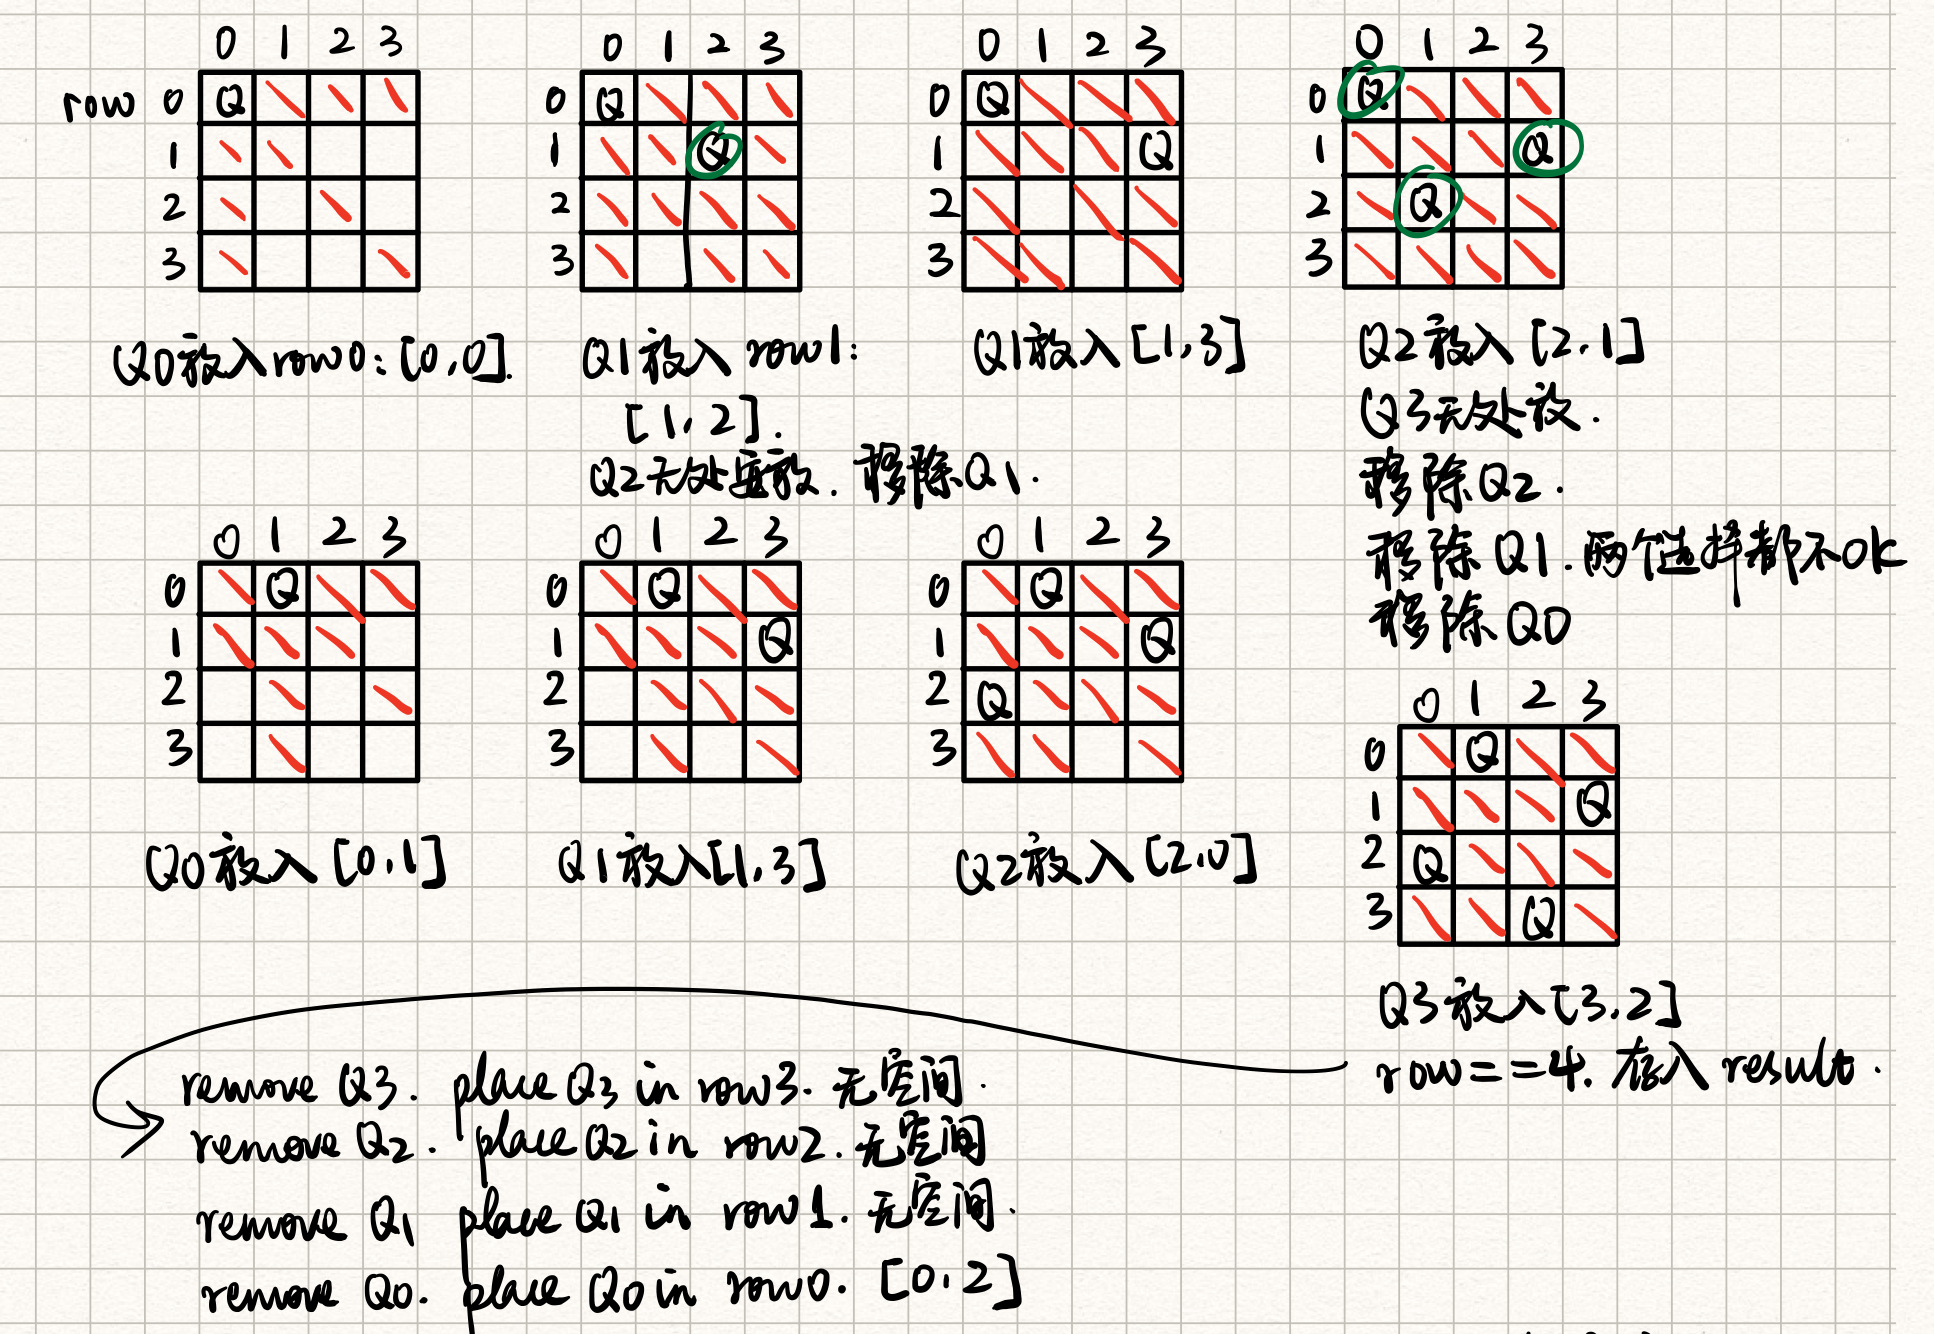 0 1 2 3
row 0 Q
1
2
3
Q0放入row0:[0,0].
0 1 2 3
0 Q
1 Q
2
3
Q1放入row1:
[1,2].
Q2无处放.移除Q1.
0 1 2 3
0 Q
1 Q
2
3
Q1放入[1,3]
0 1 2 3
0 Q
1 Q
2 Q
3
Q2放入[2,1]
Q3无处放.
移除Q2.
移除Q1.两个选择都不OK
移除Q0
0 1 2 3
0 Q
1
2
3
Q0放入[0,1]
0 1 2 3
0 Q
1 Q
2
3
Q1放入[1,3]
0 1 2 3
0 Q
1 Q
2 Q
3
Q2放入[2,0]
0 1 2 3
0 Q
1 Q
2 Q
3 Q
Q3放入[3,2]
row==4.存入result.
remove Q3. place Q3 in row3.无空间.
remove Q2. place Q2 in row2.无空间
remove Q1 place Q1 in row1.无空间.
remove Q0. place Q0 in row0. [0,2]